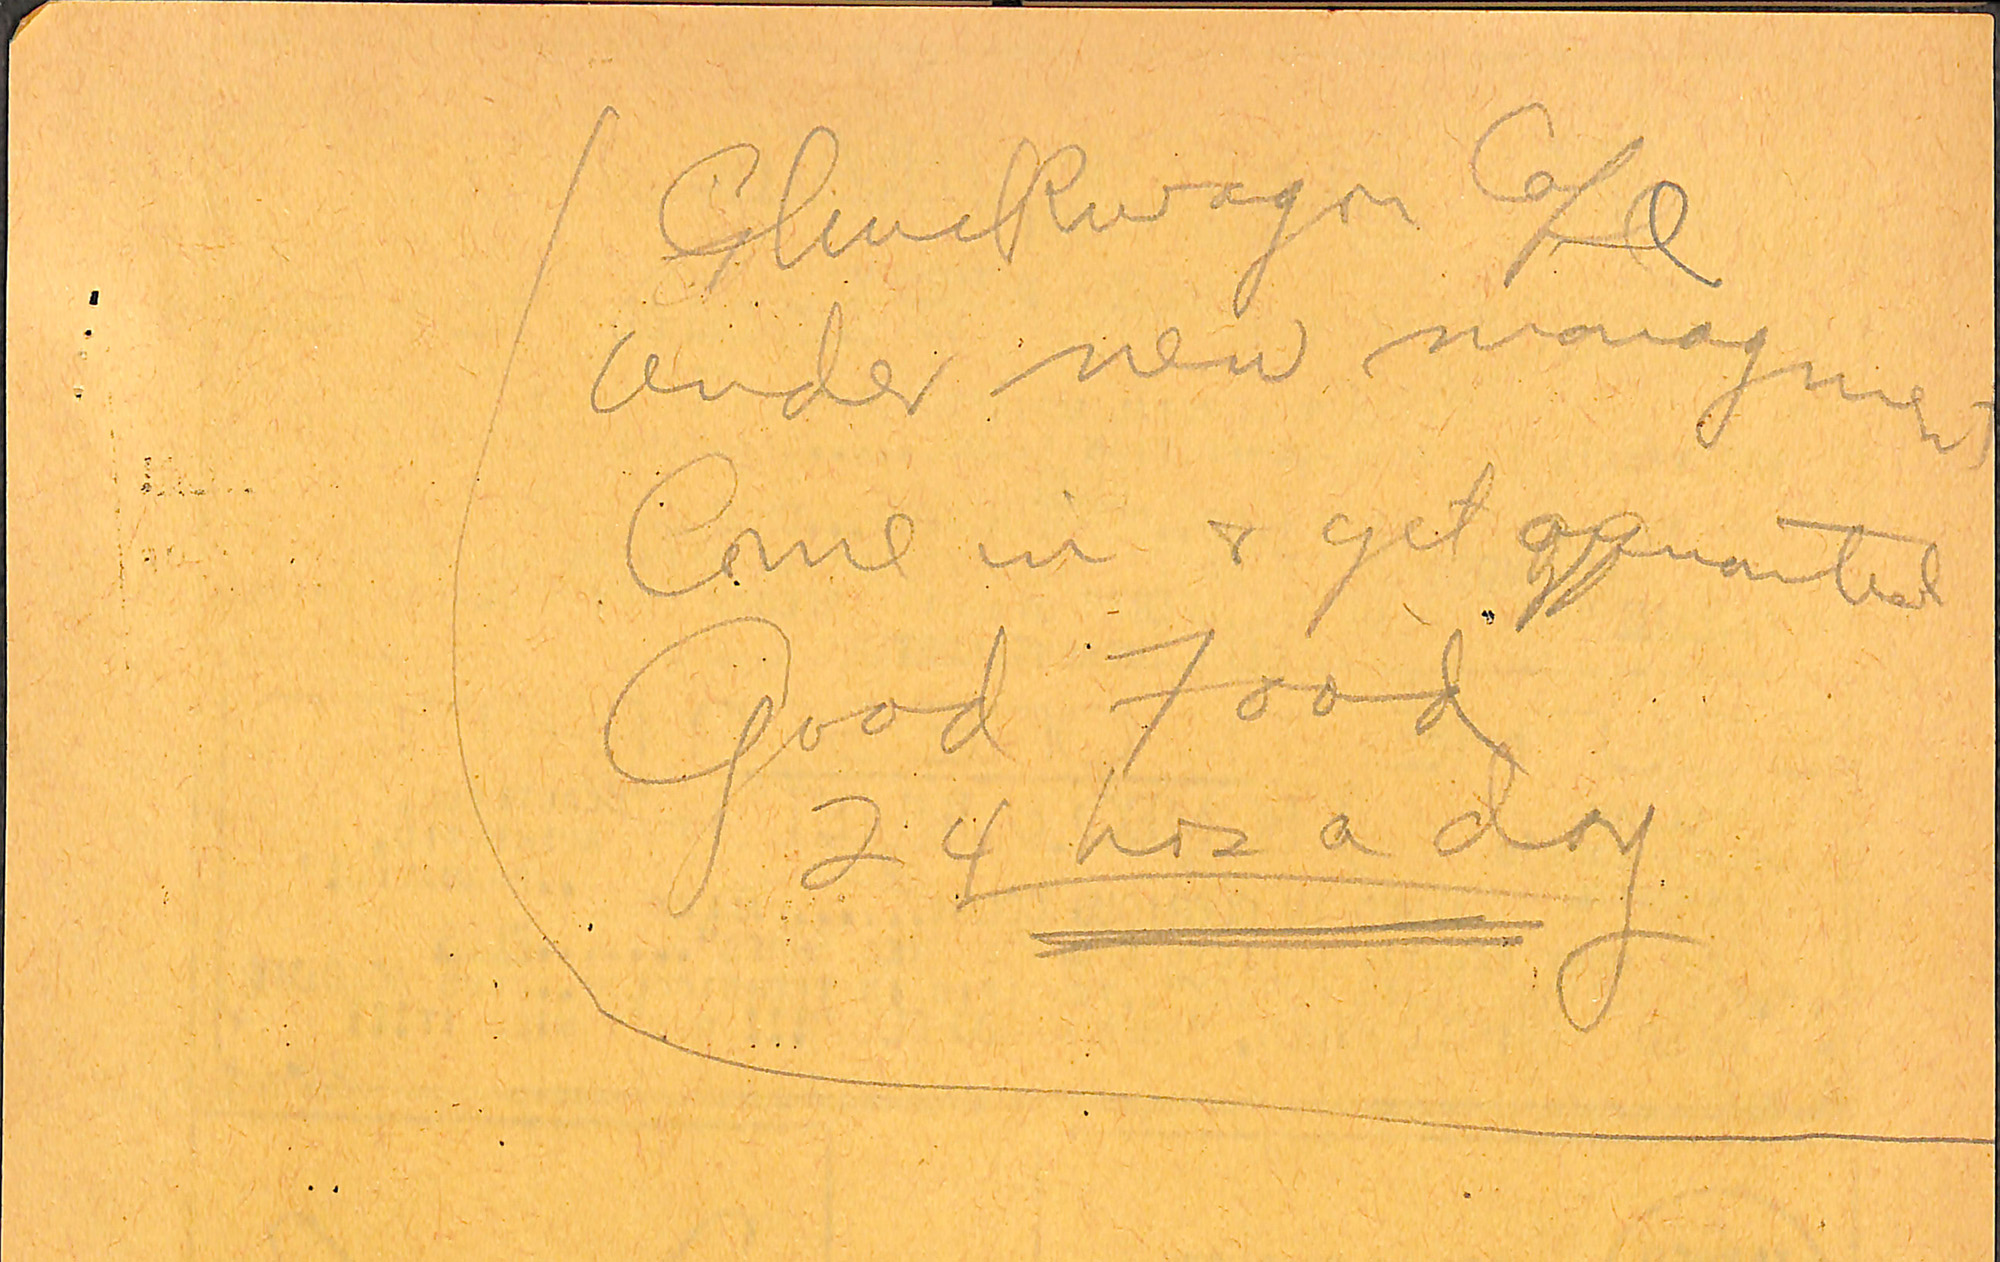 Chuckwagon Cafe
under new managment
Come in & get aquainted
Good Food
24 hrs a day